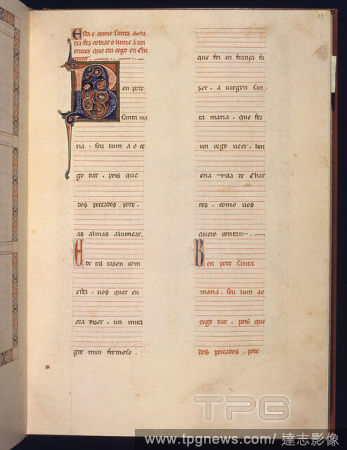 Esta é como santa maria
fez cobrar o lume a un
que era cego en
Ben pote
santa ma
ria, seu lum ao ce
go dar, pois que
dos pecados pode,
as almas alumear.
E de tal razon com
esta, vos quer eu
ora dizer, un mira
gre mui fremoso,
que foi en frança fa
zer, a virgen san
ta maria, que fez
un cego veer, ben
ena vila de Char
tes, como vos
quero contar
Ben pote santa
maria, seu lum ao
cego dar, pois que
dos peccados pote
TPG
www.tpgnews.com / 達志影像